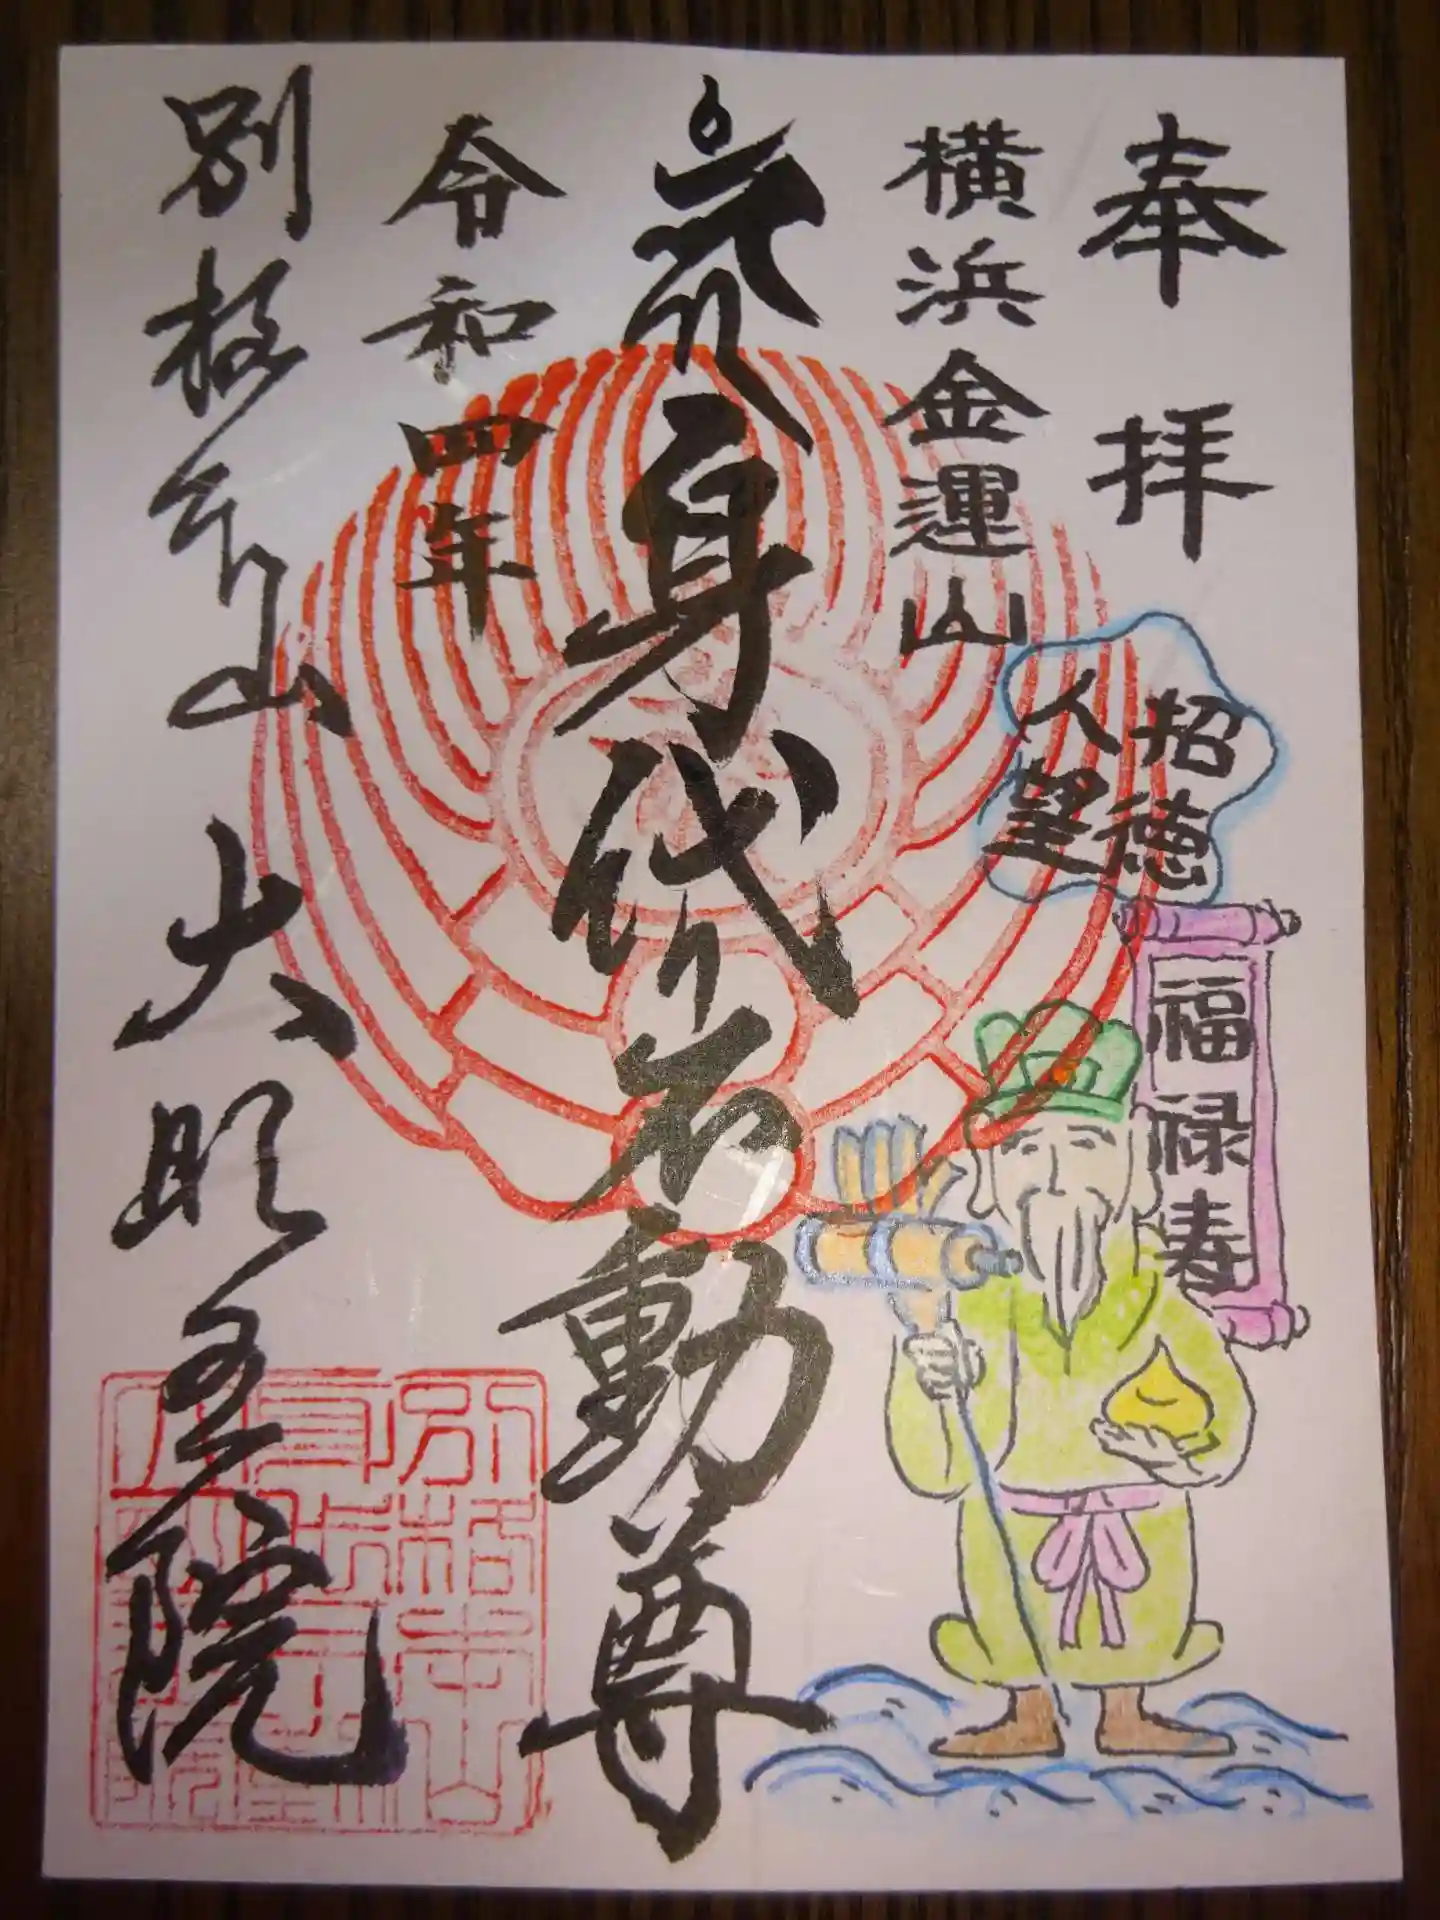 奉拝
横浜金運山
招徳
人望
福禄寿
身代不動尊
令和四年
別格本山大明王院